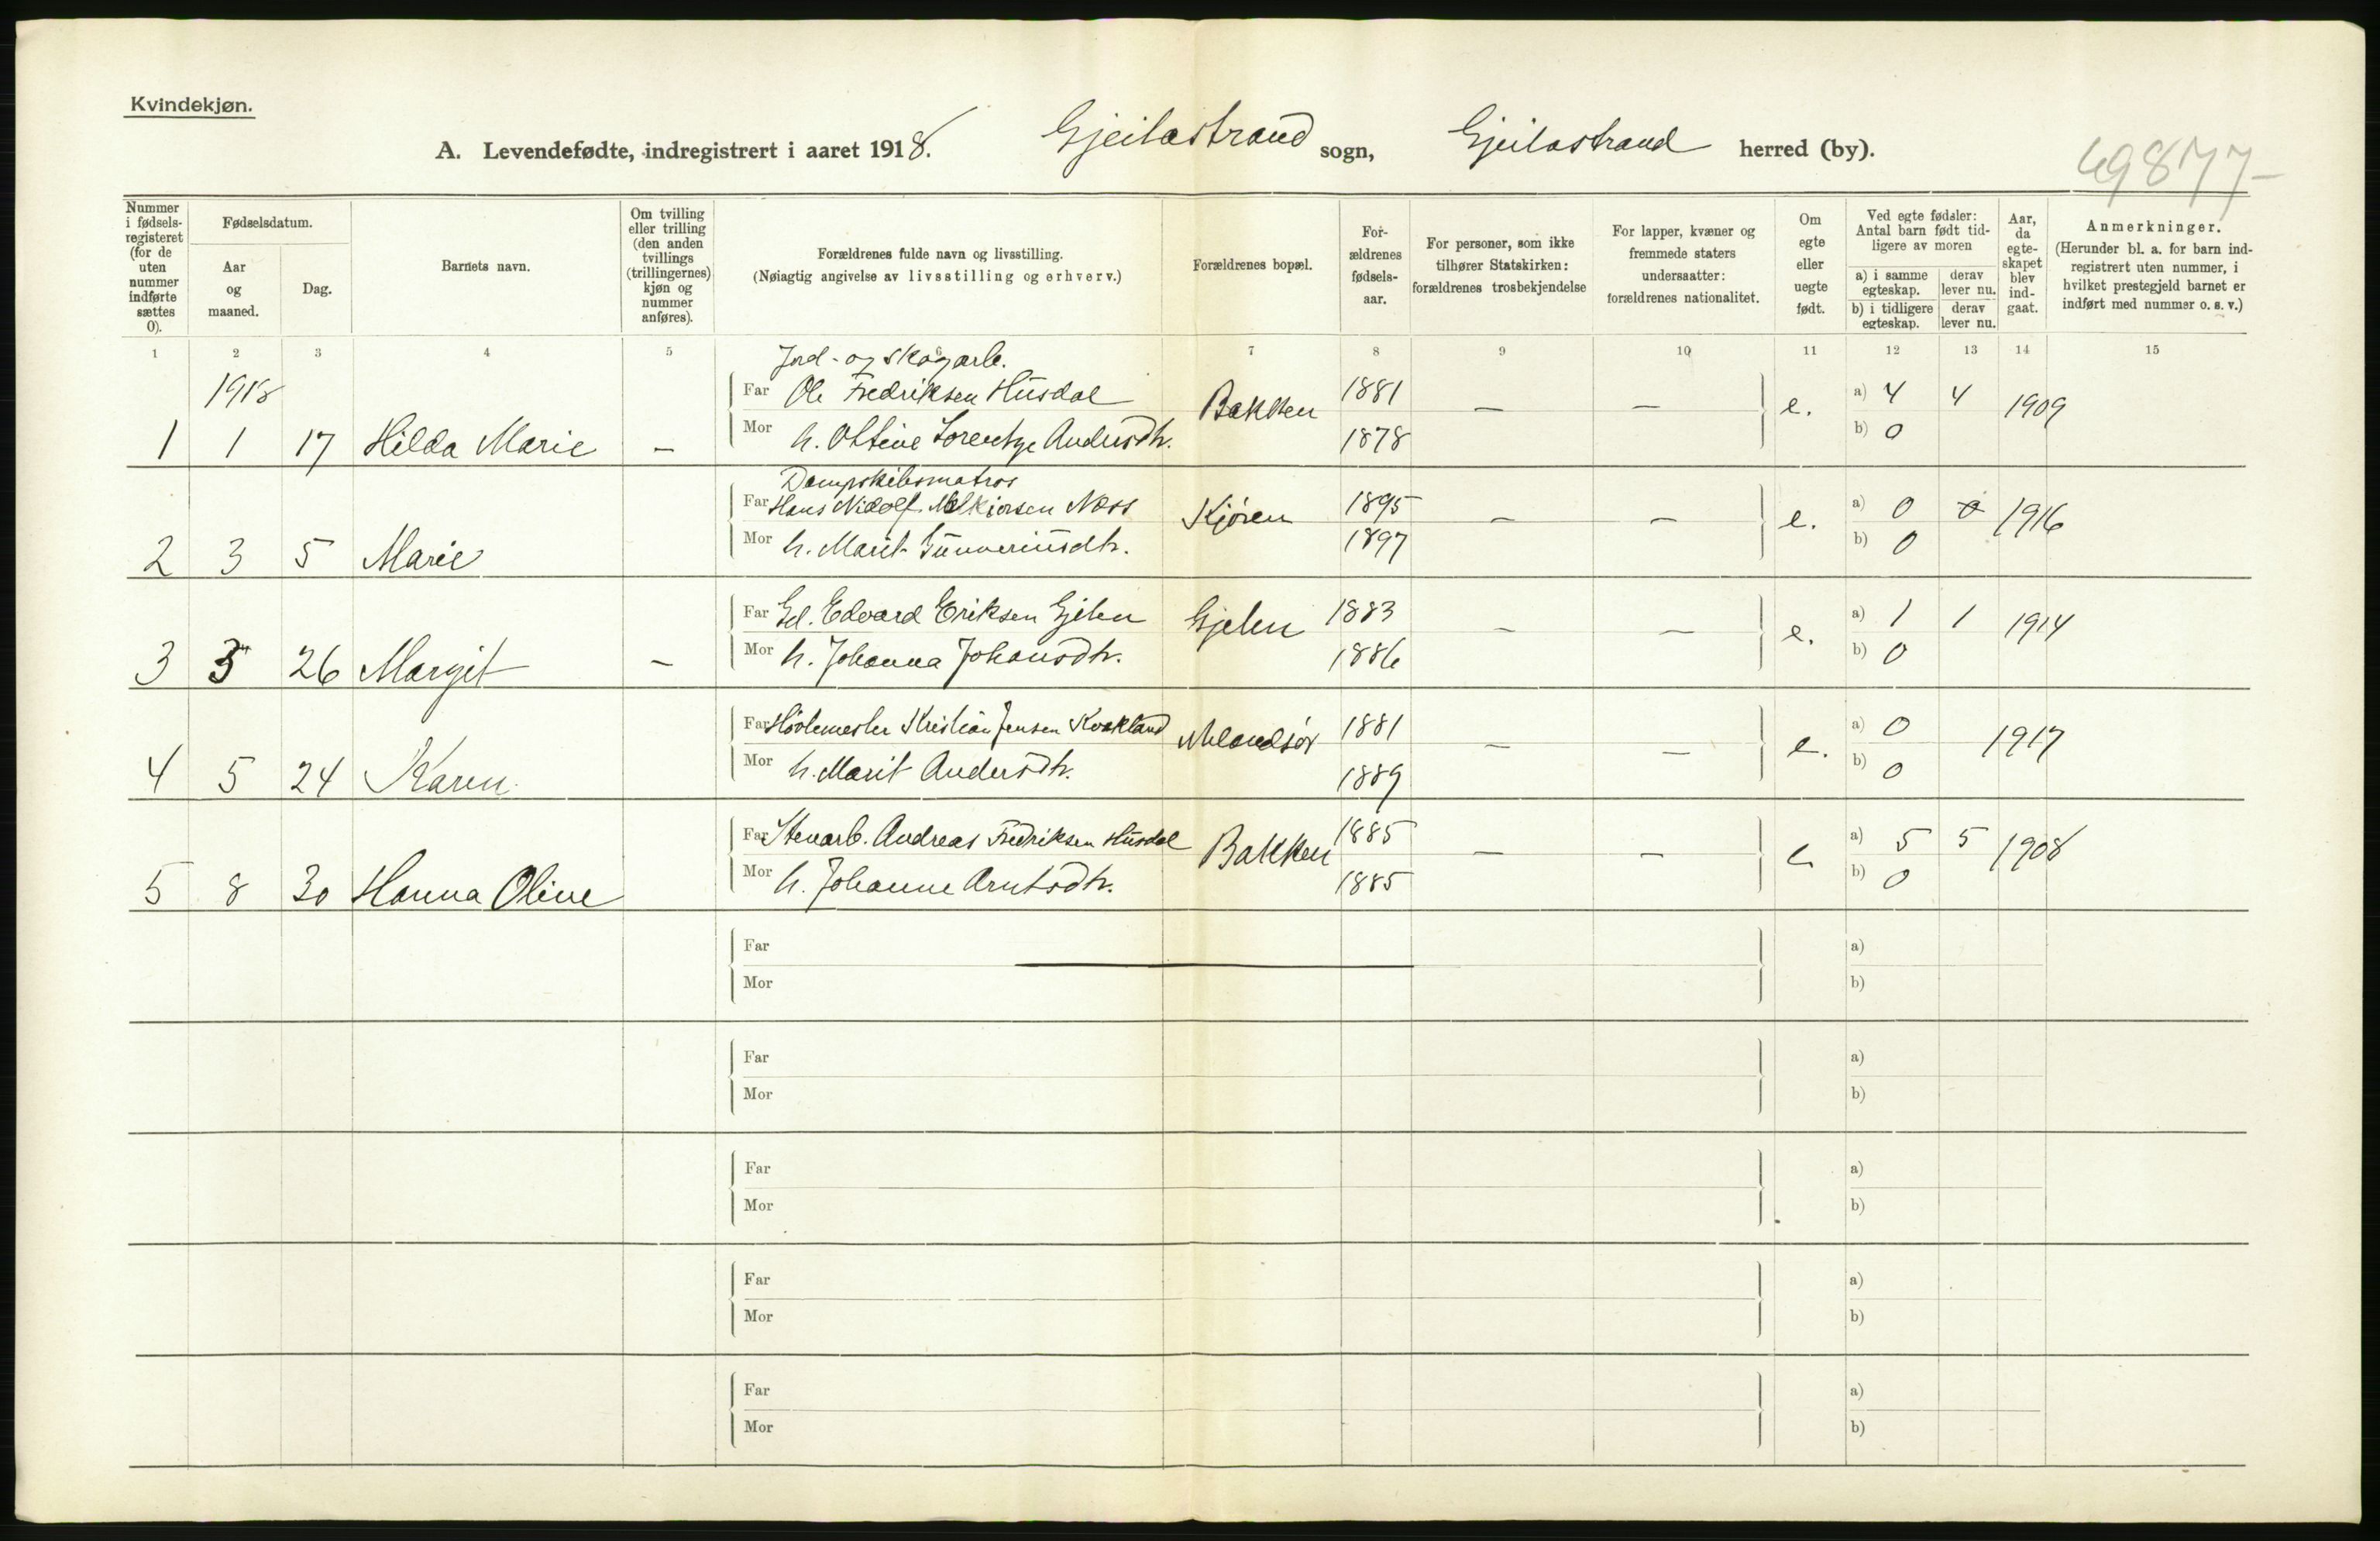 Kvindekjøn.
A. Levendefødte, indregistrert i aaret 1918. Gjeilastrand sogn, Gjeilastrand herred (by).
49877-
Nummer i fødsels-registeret (for de uten nummer indførte sættes 0).
Fødselsdatum.
Aar og maaned.
Dag.
Barnets navn.
Om tvilling eller trilling (den anden tvillings (trillingernes) kjøn og nummer anføres).
Forældrenes fulde navn og livsstilling.
(Nøiagtig angivelse av livsstilling og erhverv.)
Forældrenes bopæl.
For-ældrenes fødsels-aar.
For personer, som ikke tilhører Statskirken: forældrenes trosbekjendelse
For lapper, kvæner og fremmede staters undersaatter: forældrenes nationalitet.
Om egte eller uegte født.
Ved egte fødsler: Antal barn født tid-ligere av moren
a) i samme egteskap. derav lever nu.
b) i tidligere egteskap. derav lever nu.
Aar, da egte-skapet blev ind-gaat.
Anmerkninger.
(Herunder bl. a. for barn ind-registrert uten nummer, i hvilket prestegjeld barnet er indført med nummer o. s. v.)
1 2 3 4 5 6 7 8 9 10 11 12 13 14 15
Jord- og skogarb.
1918 Far Ole Fredriksen Husdal Bakken 1881 — — e. a) 4 4 1909
1 1 17 Hilda Marie — Mor h. Oltine Lorentze Andersdtr. 1878 b) 0
Dampskibsmatros
Far Hans Nidolf Melkiorsen Næss Kjøren 1895 — — e. a) 0 0 1916
2 3 5 Marie Mor h. Marit Gunneriusdtr. 1897 b) 0
Far Gd. Edvard Eriksen Gjelen Gjelen 1883 — — e. a) 1 1 1914
3 3 26 Margit — Mor h. Johanna Johansdtr. 1886 b) 0
Far Høvlemester Kristian Jensen Kvakland 1881 — — e. a) 0 1917
4 5 24 Karen Mor h. Marit Andersdtr. 1889 b) 0
Far Stenarb. Andreas Fredriksen Husdal Bakken 1885 — — e a) 5 5 1908
5 8 30 Hanna Oline Mor h. Johanne Arntsdtr. 1885 b) 0
Far a)
Mor b)
Far a)
Mor b)
Far a)
Mor b)
Far a)
Mor b)
Far a)
Mor b)